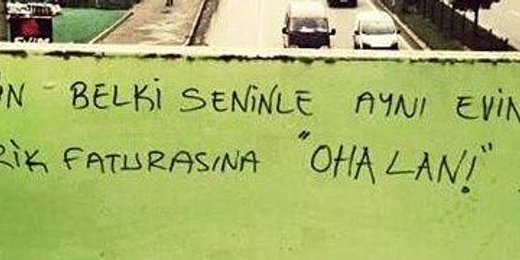 N BELKİ SENİNLE AYNI EVİN
RİK FATURASINA "OHA LAN!"